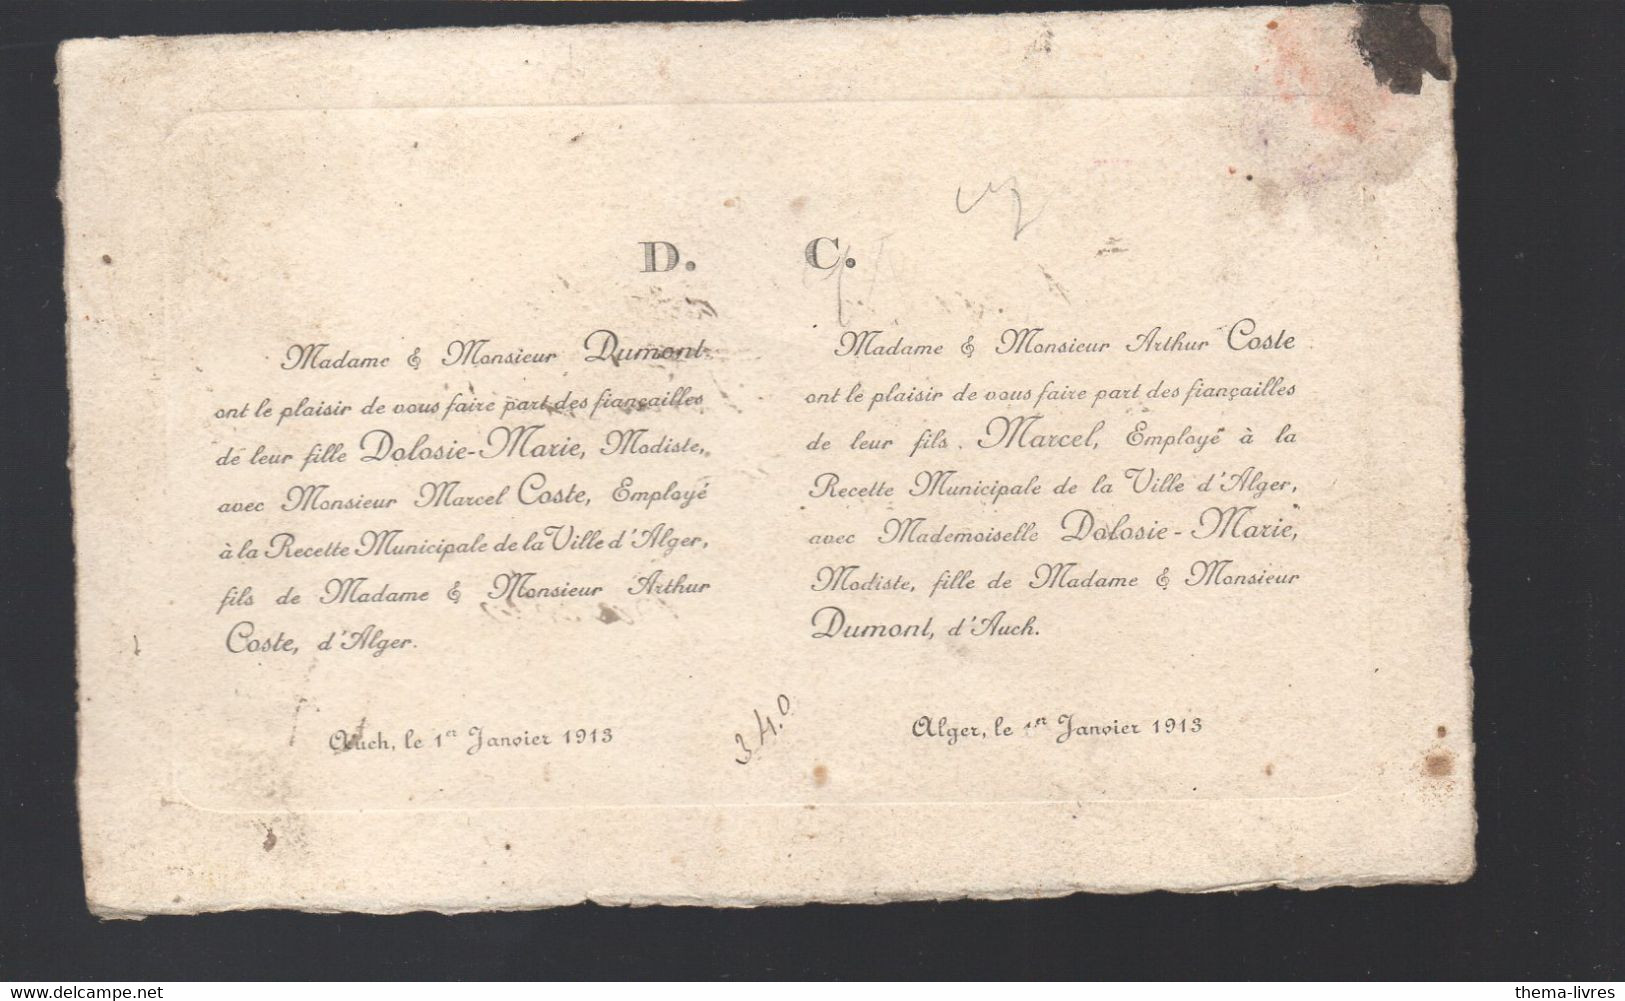 D.
Madame & Monsieur Dumont
ont le plaisir de vous faire part des fiançailles
de leur fille Dolosie-Marie, Modiste,
avec Monsieur Marcel Coste, Employé
à la Recette Municipale de la Ville d'Alger,
fils de Madame & Monsieur Arthur
Coste, d'Alger.
Auch, le 1er Janvier 1913
C.
Madame & Monsieur Arthur Coste
ont le plaisir de vous faire part des fiançailles
de leur fils Marcel, Employé à la
Recette Municipale de la Ville d'Alger,
avec Mademoiselle Dolosie-Marie,
Modiste, fille de Madame & Monsieur
Dumont, d'Auch.
Alger, le 1er Janvier 1913
340
delcampe.net
thema-livres